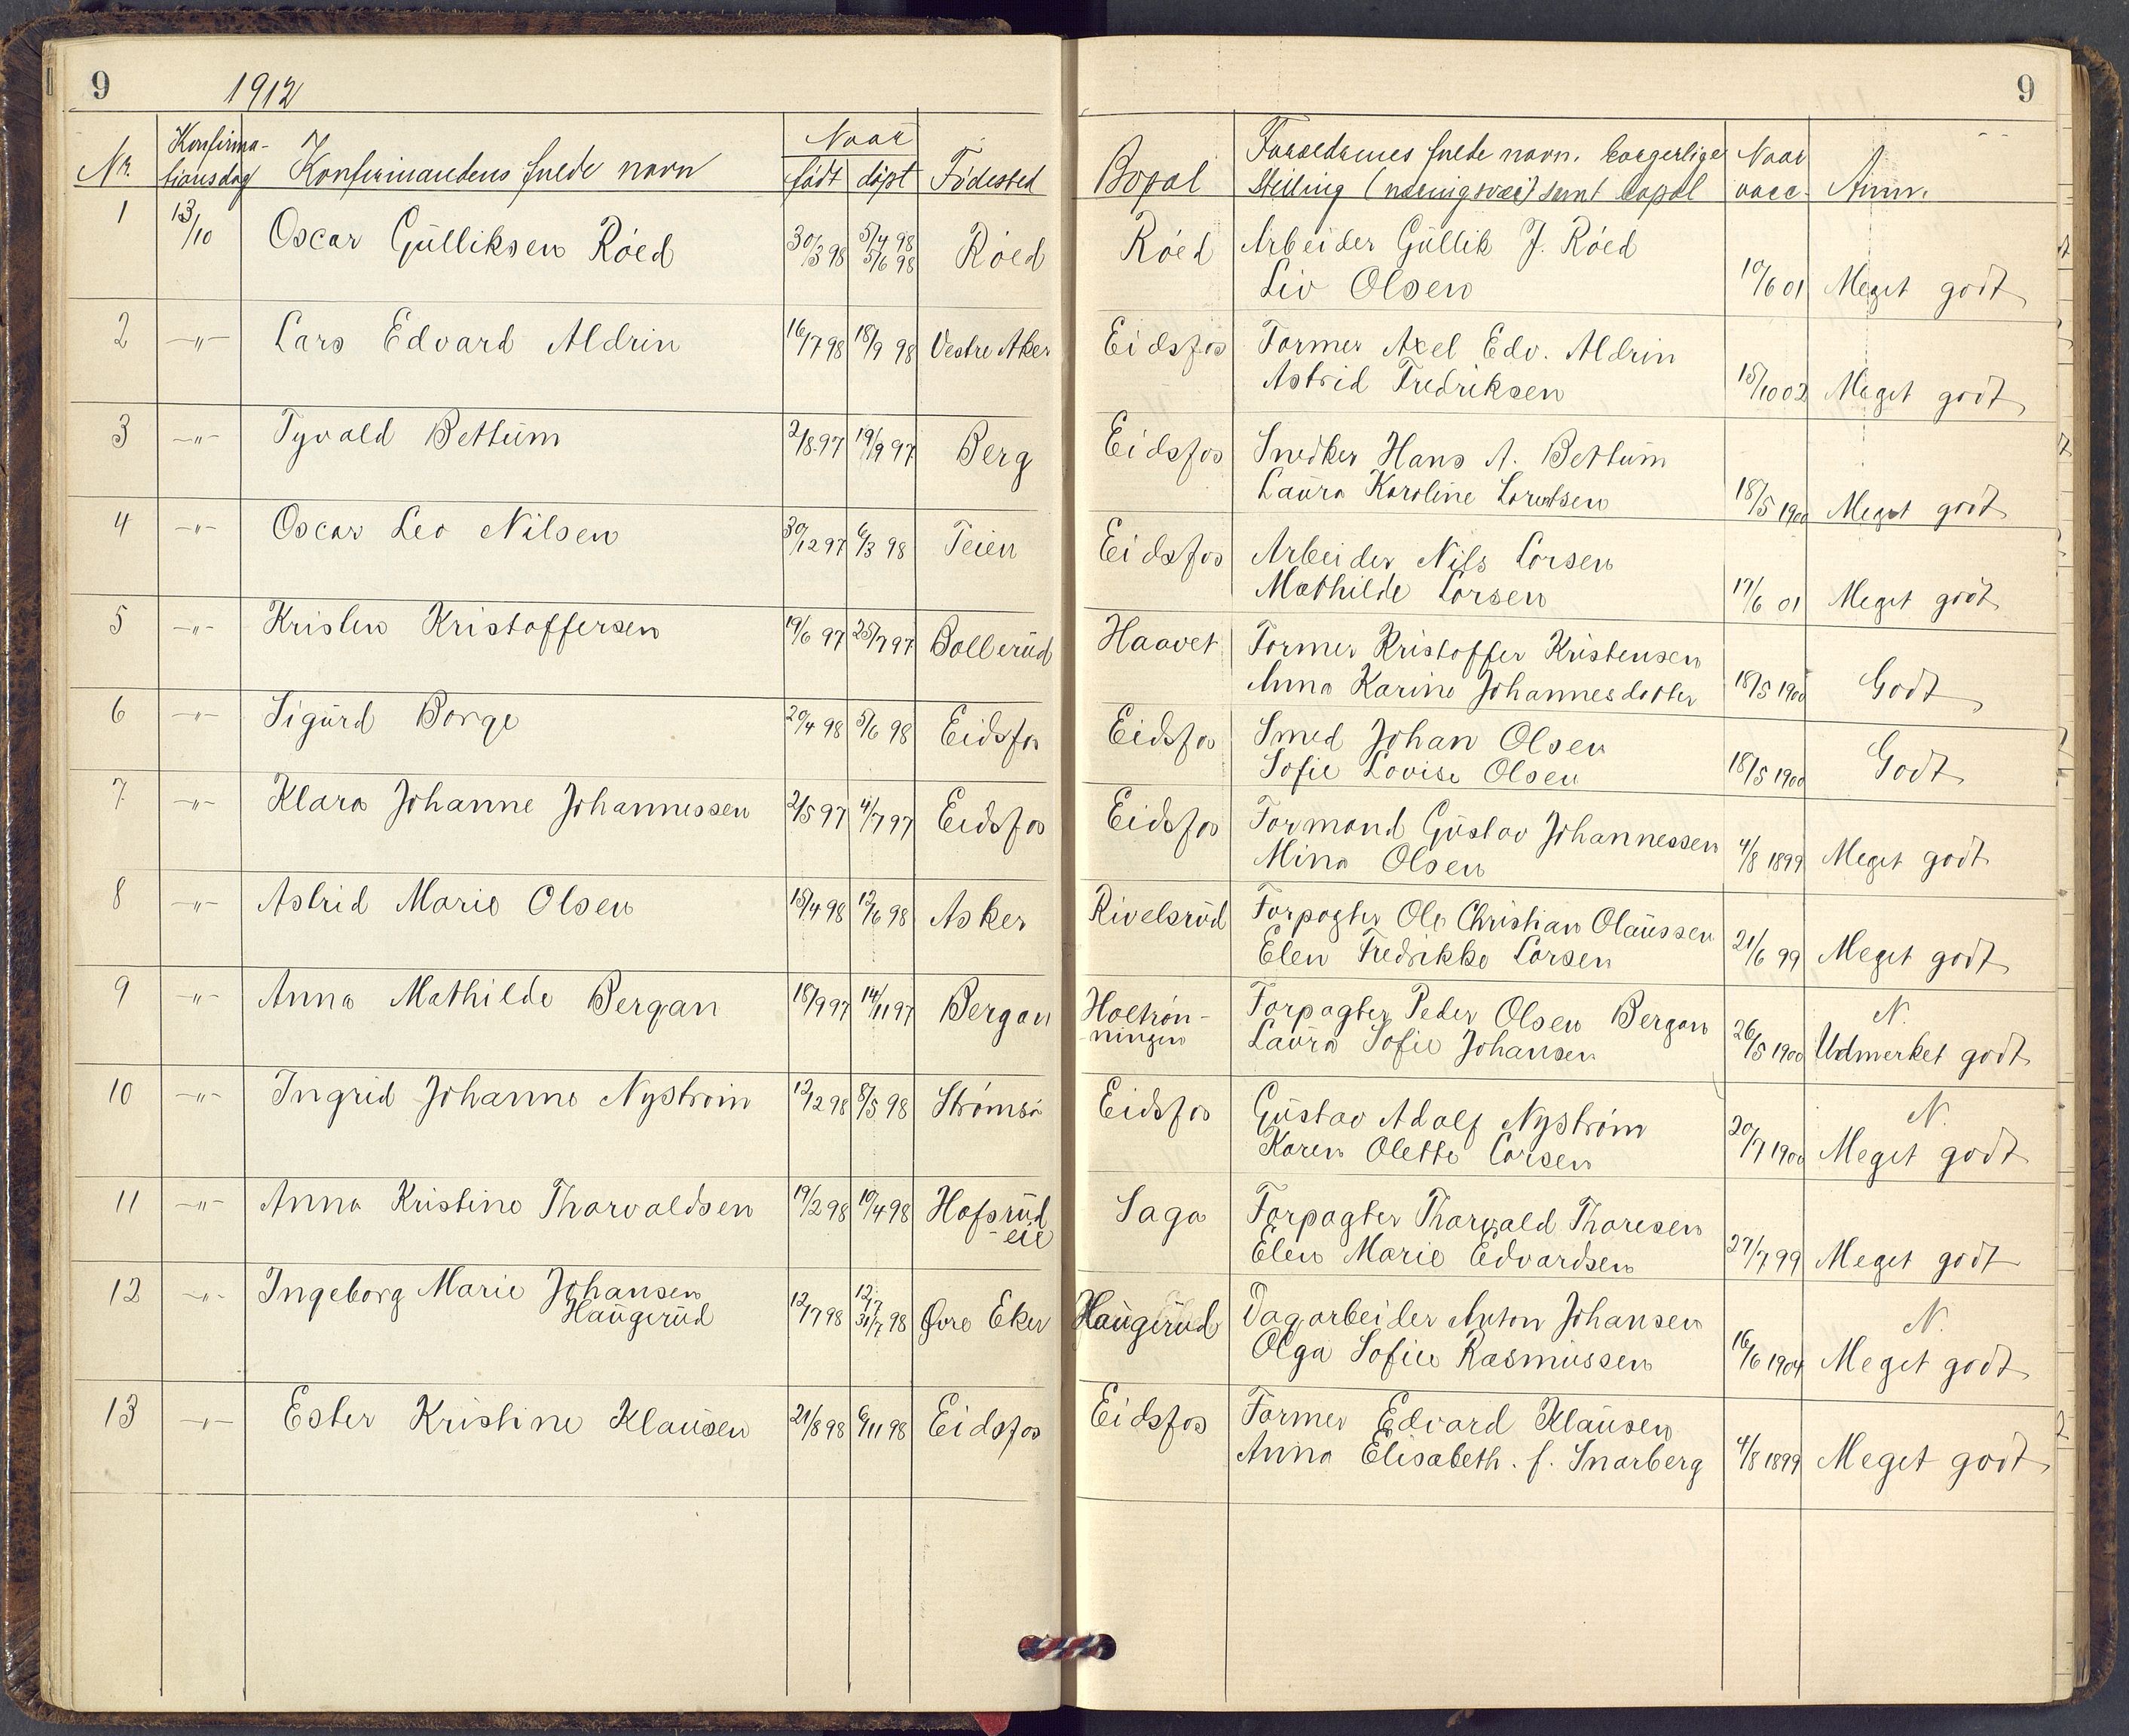 9 1912 9
Nr. Konfirma-tionsdag Konfirmandens fulde navn Naar født døpt Fødested Bopæl Forældrenes fulde navn, borgerlige Stilling (næringsvei) samt bopæl Naar vacc. Anm.
1 13/10 Oscar Gulliksen Røed 30/3 98 5/4 98 Røed Røed Arbeider Gullik J. Røed
5/6 98 Liv Olsen 10/6 01 Meget godt
2 -"- Lars Edvard Aldrin 16/7 98 18/9 98 Vestre Aker Eidsfos Former Axel Edv. Aldrin
Astrid Fredriksen 15/10 02 Meget godt
3 -"- Tyvald Bettum 2/8 97 19/9 97 Berg Eidsfos Snedker Hans A. Bettum
Laura Karoline Lorentsen 18/5 1900 Meget godt
4 -"- Oscar Leo Nilsen 30/12 97 6/3 98 Teien Eidsfos Arbeider Nils Larsen
Mathilde Larsen 17/6 01 Meget godt
5 -"- Kristen Kristoffersen 19/6 97 25/7 97 Bollerud Haavet Former Kristoffer Kristensen
Anna Karine Johannesdatter 18/5 1900 Godt
6 -"- Sigurd Borge 20/4 98 5/6 98 Eidsfos Eidsfos Smed Johan Olsen
Sofie Lovise Olsen 18/5 1900 Godt
7 -"- Klara Johanne Johannessen 2/5 97 4/7 97 Eidsfos Eidsfos Formand Gustav Johannessen
Mina Olsen 4/8 1899 Meget godt
8 -"- Astrid Marie Olsen 15/4 98 12/6 98 Asker Rivelsrud Forpagter Ole Christian Olaussen
Elen Fredrikke Larsen 21/6 99 Meget godt
9 -"- Anna Mathilde Bergan 18/9 97 14/11 97 Bergan Holtrøn- Forpagter Peder Olsen Bergan N.
ningen Laura Sofie Johansen 26/5 1900 Udmerket godt
10 -"- Ingrid Johanne Nystrøm 12/2 98 8/5 98 Strømsø Eidsfos Gustav Adolf Nystrøm N.
Karen Olette Larsen 20/7 1900 Meget godt
11 -"- Anna Kristine Thorvaldsen 19/2 98 10/4 98 Hofsrud Saga Forpagter Thorvald Thoresen
-eie Elen Marie Edvardsen 27/7 99 Meget godt
12 -"- Ingeborg Marie Johansen 12/7 98 12/7 Øvre Eker Haugerud Dagarbeider Anton Johansen N.
Haugerud 31/7 98 Olga Sofie Rasmussen 16/6 1904 Meget godt
13 -"- Ester Kristine Klausen 21/8 98 6/11 98 Eidsfos Eidsfos Former Edvard Klausen
Anna Elisabeth. f. Snarberg 4/8 1899 Meget godt